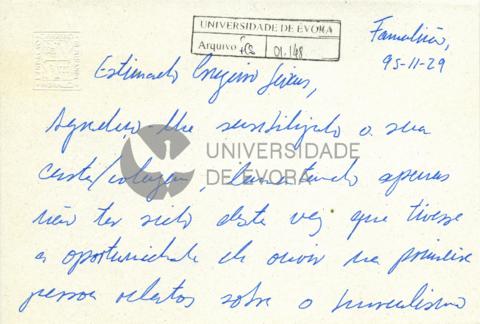 UNIVERSIDADE DE EVORA
Arquivo FCS 01.148
Famalicão,
95-11-29
Estimado Cruzeiro Seixas,
Agradeço-lhe sensibilizado a sua
carta/colagem, lamentando apenas
não ter sido desta vez que tivesse
a oportunidade de ouvir na primeira
pessoa relatos sobre o surrealismo
UNIVERSIDADE
DE EVORA